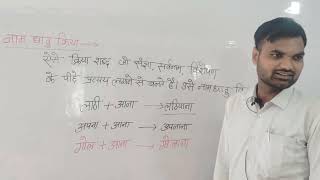 नाम धातु क्रिया
ऐसे क्रिया शब्द जो संज्ञा, सर्वनाम, विशेषण
के पीछे प्रत्यय लगाने से बनते हैं। उसे नाम धातु
लाठी + आना → लठियाना
अपना + आना → अपनाना
गोल + आना →